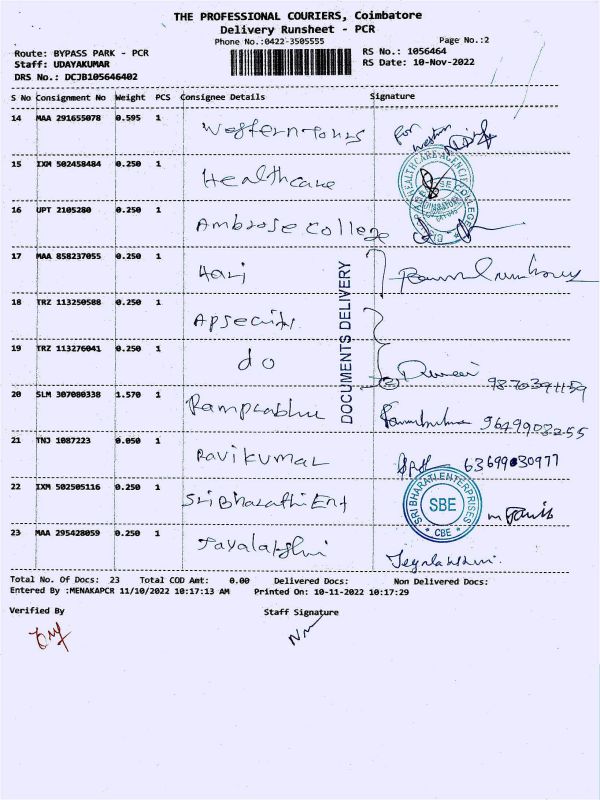 THE PROFESSIONAL COURIERS, Coimbatore
Delivery Runsheet - PCR
Phone No.:0422-3505555
Page No.:2
Route: BYPASS PARK - PCR
RS No.: 1056464
Staff: UDAYAKUMAR
RS Date: 10-Nov-2022
DRS No.: DCJB105646402
S No Consignment No Weight PCS Consignee Details Signature
14 MAA 291655078 0.595 1 Western Tours
For Western
15 IXM 502458484 0.250 1 Healthcare
HEALTHCARE AGENCIES
16 UPT 2105280 0.250 1 Ambrose College
17 MAA 858237055 0.250 1 Hari
18 TRZ 113250588 0.250 1 Apsecits
DOCUMENTS DELIVERY
19 TRZ 113276041 0.250 1 do
9870391159
20 SLM 307080338 1.570 1 Ramprabhu
9649903255
21 TNJ 1087223 0.050 1 Ravikumar
6369930977
22 IXM 502505116 0.250 1 Sri Bharathi Ent
SRI BHARATI ENTERPRISES
SBE
* CBE *
23 MAA 295428059 0.250 1 Jayalakshmi
Total No. Of Docs: 23 Total COD Amt: 0.00 Delivered Docs: Non Delivered Docs:
Entered By :MENAKAPCR 11/10/2022 10:17:13 AM Printed On: 10-11-2022 10:17:29
Verified By
Staff Signature